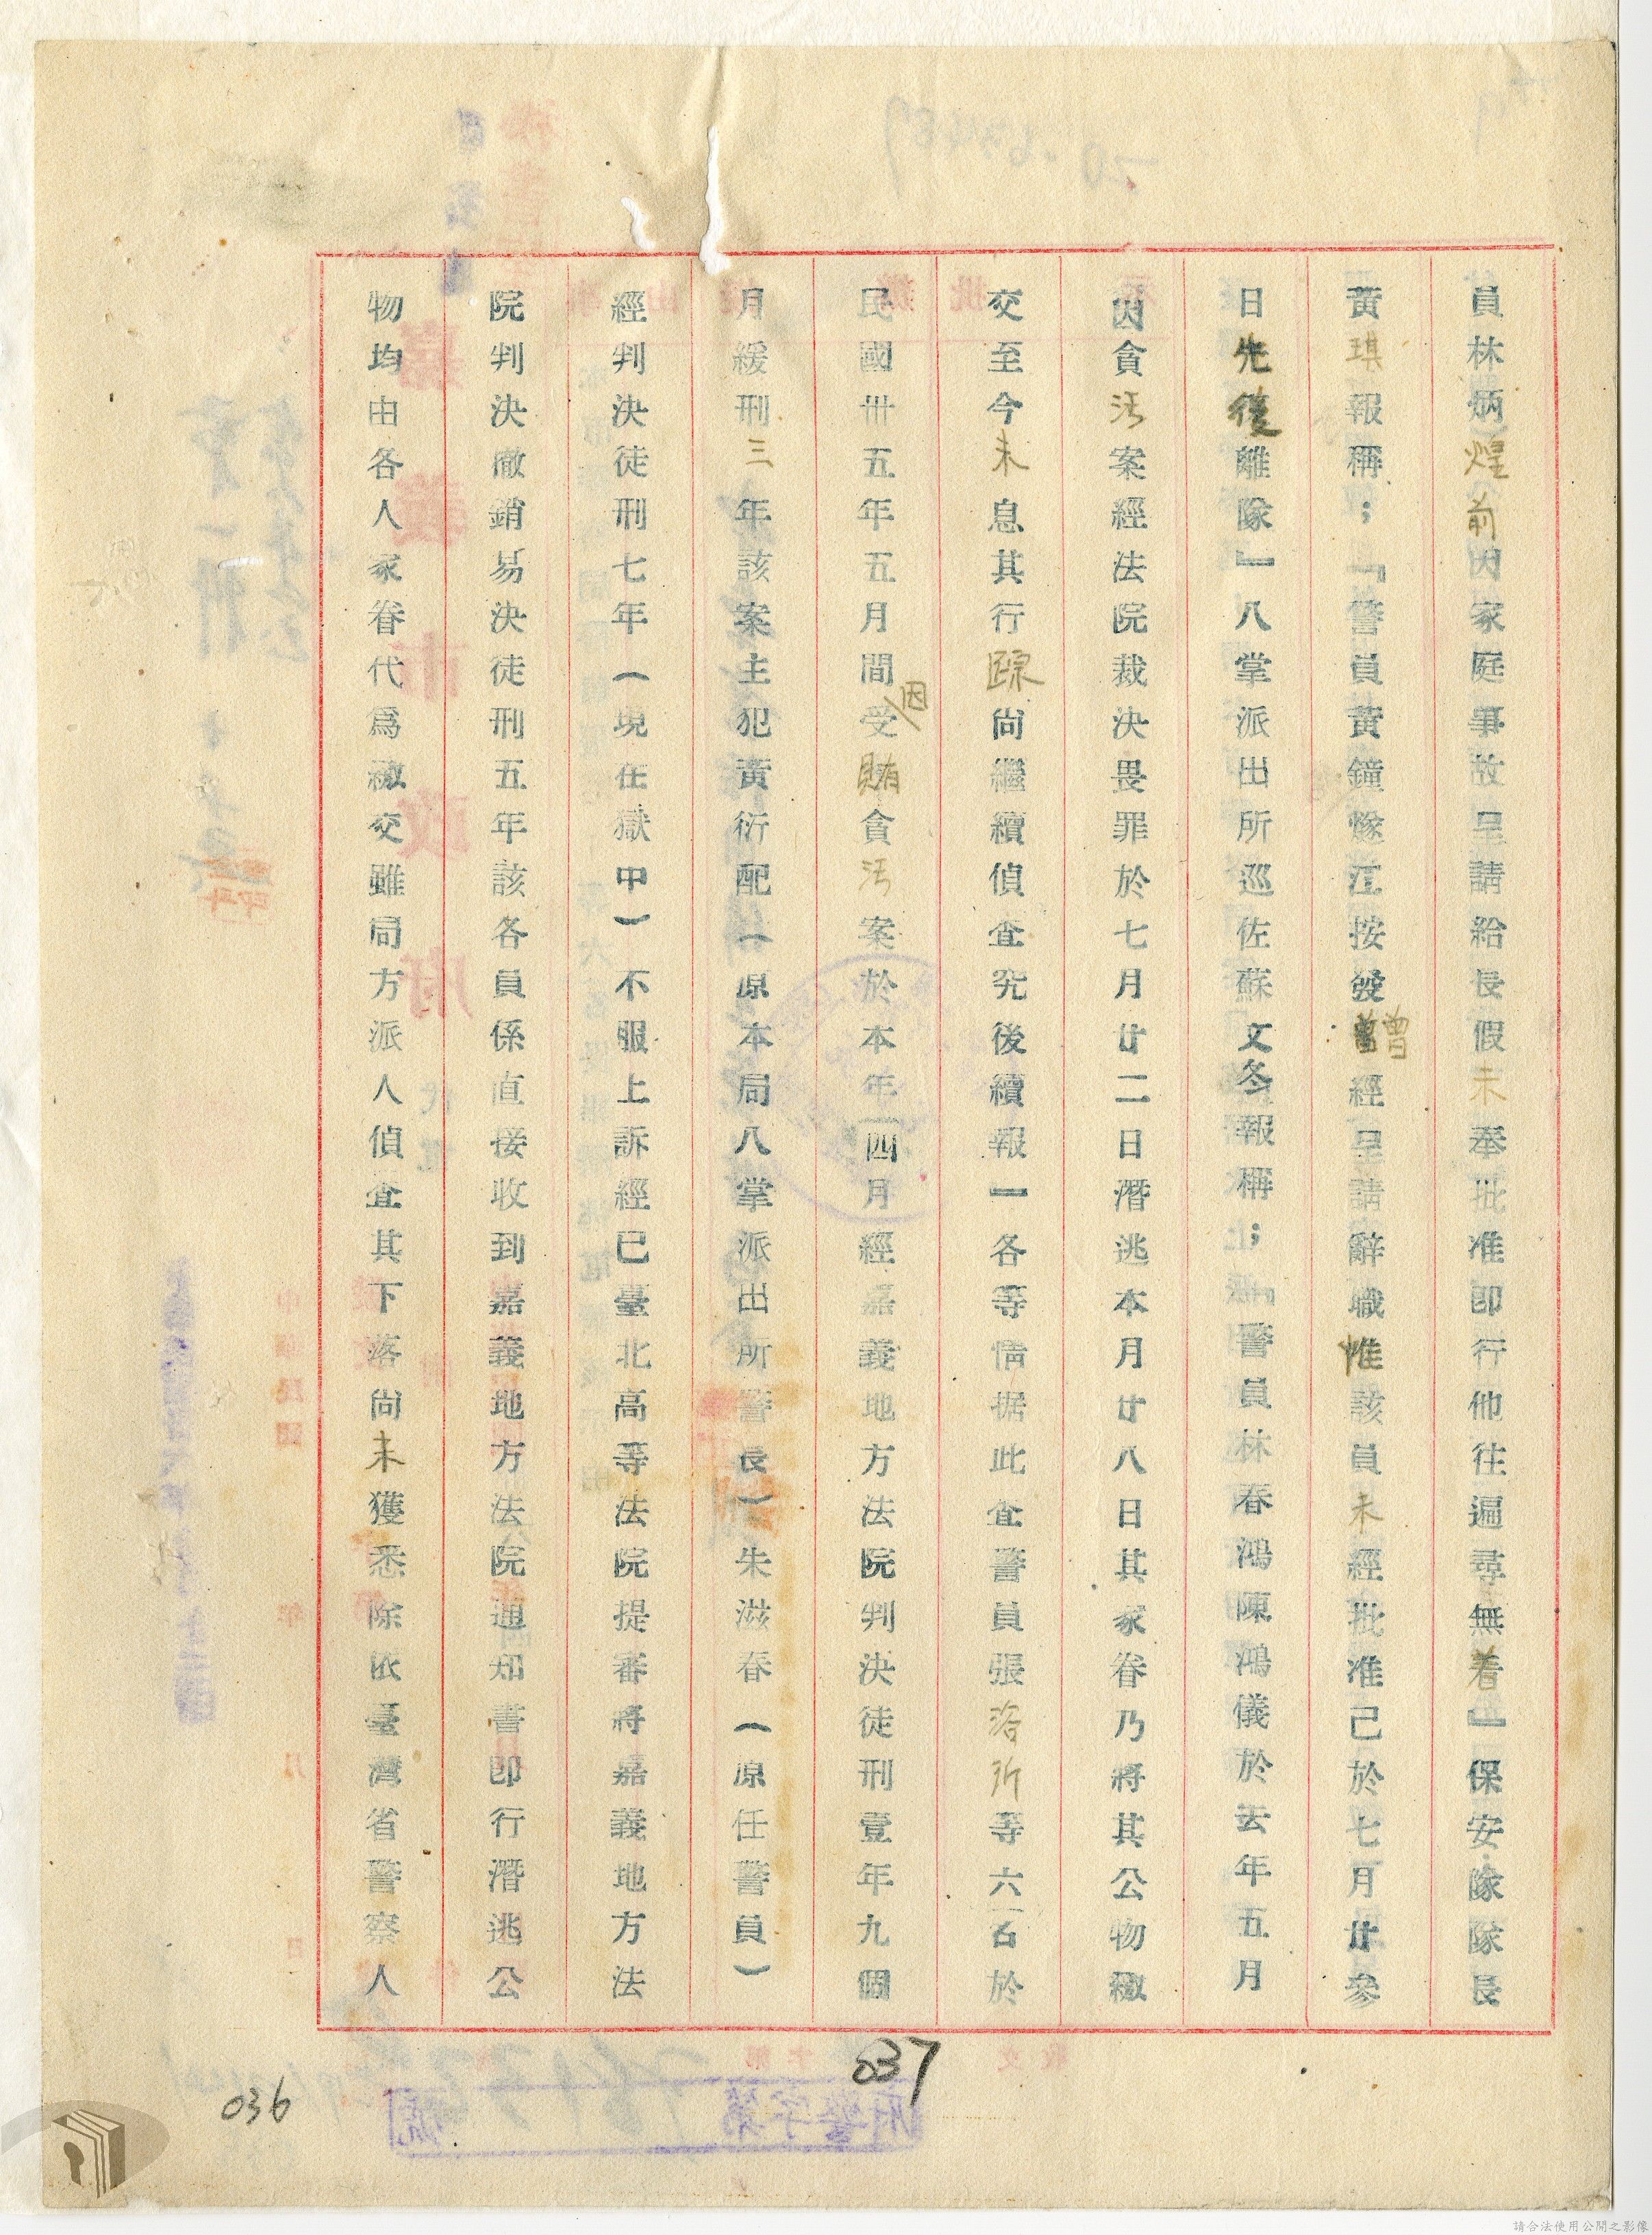 員林炳煌前因家庭事故呈請給長假未奉批准即行他往遍尋無着』保安隊隊長
黃琪報稱；『警員黃鐘燧江按發曾經呈請辭職惟該員未經批准已於七月廿參
日先後離隊』八掌派出所巡佐蘇文冬報稱；『警員林春鴻陳鴻儀於去年五月
因貪汚案經法院裁決畏罪於七月廿二日潛逃本月廿八日其家眷乃將其公物繳
交至今未息其行踪尚繼續偵查究後續報』各等情据此查警員張洛所等六名於
民國卅五年五月間因受賄貪汚案於本年四月經嘉義地方法院判決徒刑壹年九個
月緩刑三年該案主犯黃衍配（原本局八掌派出所警長）朱滋春（原任警員）
經判決徒刑七年（現在獄中）不服上訴經已臺北高等法院提審將嘉義地方法
院判決撤銷易決徒刑五年該各員係直接收到嘉義地方法院通知書即行潛逃公
物均由各人家眷代爲繳交雖局方派人偵查其下落尚未獲悉除依臺灣省警察人
037
036
請合法使用公開之影像